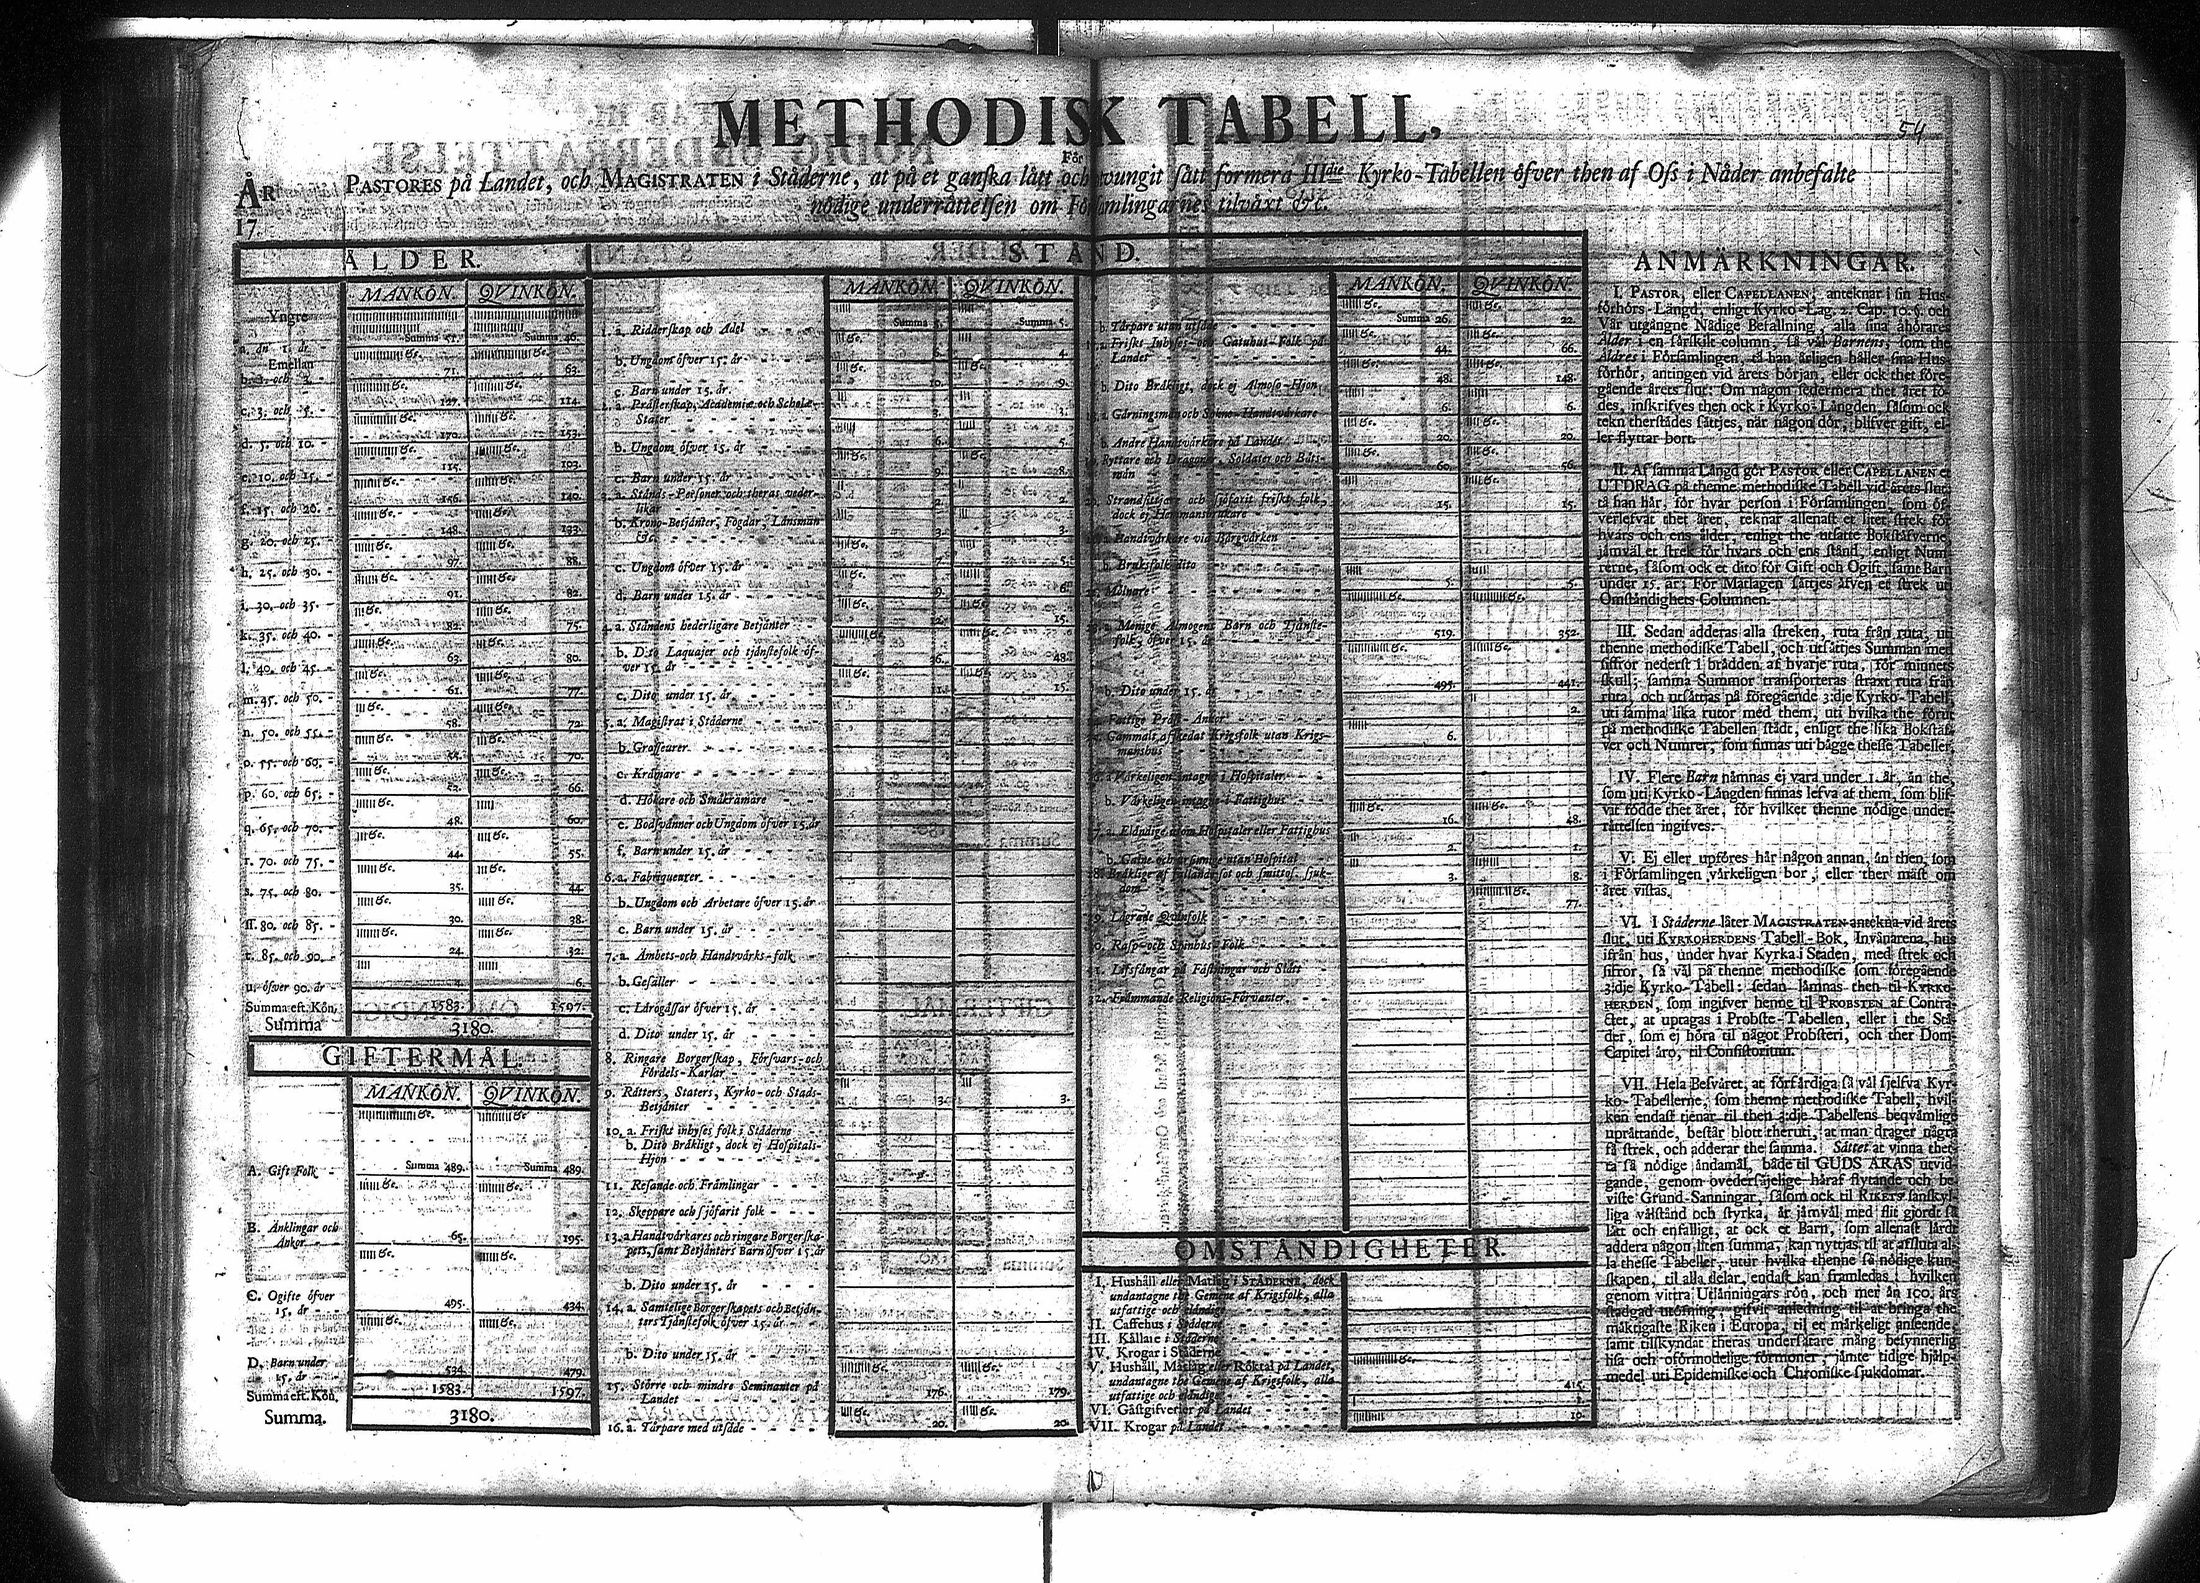 METHODISK TABELL,
54
För
PASTORES på Landet, och MAGISTRATEN i Städerne, at på et ganska lätt och tvungit sätt formera IIIdie Kyrko-Tabellen öfver then af Oss i Nåder anbefalte
nödige underrättelsen om Församlingarnes tilväxt &c.
ÅR
17
ÅLDER.
MANKÖN. QVINKÖN.
Yngre
a. än 1. år. Summa 51. Summa 46.
Emellan
b. 1. och 3. 71. 63.
c. 3. och 5. 127. 114.
d. 5. och 10. 170. 153.
e. 10. och 15. 115. 103.
f. 15. och 20. 156. 140.
g. 20. och 25. 148. 133.
h. 25. och 30. 97. 88.
i. 30. och 35. 91. 82.
k. 35. och 40. 82. 75.
l. 40. och 45. 63. 80.
m. 45. och 50. 61. 77.
n. 50. och 55. 58. 72.
o. 55. och 60. 70.
p. 60. och 65. 66.
q. 65. och 70. 48. 60.
r. 70. och 75. 44. 55.
s. 75. och 80. 35. 44.
ſſ. 80. och 85. 30. 38.
t. 85. och 90. 24. 32.
u. öfver 90. år 6.
Summa eft. Kön. 1583. 1597.
Summa 3180.
GIFTERMÅL.
MANKÖN. QVINKÖN.
A. Gift Folk Summa 489. Summa 489.
B. Änklingar och
Änkor 65. 195.
C. Ogifte öfver
15. år 495. 434.
D. Barn under
15. år 534. 479.
Summa eft. Kön. 1583. 1597.
Summa. 3180.
STÅND.
MANKÖN. QVINKÖN.
1. a. Ridderskap och Adel Summa 5. Summa 5.
b. Ungdom öfver 15. år 6. 4.
c. Barn under 15. år 10. 9.
2. a. Prästerskap, Academiæ och Scholæ-
Stater 3. 3.
b. Ungdom öfver 15. år 6. 5.
c. Barn under 15. år 9. 8.
3. a. Stånds-Personer och theras veder-
likar 2. 2.
b. Krono-Betjänter, Fogdar, Länsmän
&c. 3. 3.
c. Ungdom öfver 15. år 7. 5.
d. Barn under 15. år 9. 6.
4. a. Ståndens hederligare Betjänter 12. 15.
b. Dito Laquajer och tjänstefolk öf-
ver 15. år 26. 48.
c. Dito under 15. år 11. 15.
5. a. Magistrat i Städerne
b. Grosseurer
c. Krämare
d. Hökare och Småkrämare
e. Bodsvänner och Ungdom öfver 15. år
f. Barn under 15. år
6. a. Fabriqueurer
b. Ungdom och Arbetare öfver 15. år
c. Barn under 15. år
7. a. Ämbets-och Handtvärks-folk
b. Gesäller
c. Lärogåssar öfver 15. år
d. Dito under 15. år
8. Ringare Borgerskap, Försvars-och
Fördels-Karlar
9. Rätters, Staters, Kyrko-och Stads-
Betjänter 3. 3.
10. a. Friskt inhyses folk i Städerne
b. Dito Bräkligt, dock ej Hospitals-
Hjon
11. Resande och Främlingar
12. Skeppare och sjöfarit folk
13. a. Handtvärkares och ringare Borgerska-
pets, samt Betjänters Barn öfver 15. år
b. Dito under 15. år
14. a. Samtelige Borgerskapets och Betjän-
ters Tjänstefolk öfver 15. år
b. Dito under 15. år
15. Större och mindre Seminanter på
Landet 176. 179.
16. a. Tårpare med utsäde 20. 20.
MANKÖN. QVINKÖN.
b. Tårpare utan utsäde Summa 26. 22.
a. Friskt Inhyses-och Gatuhus-Folk på
Landet 44. 66.
b. Dito Bräkligt, dock ej Almoso-Hjon 48. 148.
a. Gärningsmän och Sokne-Handtvärkare 6. 6.
b. Andre Handtvärkare på Landet 20. 20.
Ryttare och Dragoner, Soldater och Båts-
män 60. 56.
Strandsittjare och sjöfarit friskt folk,
dock ej Hemmansbrukare 15. 15.
a. Handtvärkare vid Bärgvärken
b. Bruksfolk dito 5. 5.
Mölnare
a. Menige Almogens Barn och Tjänste-
folk, öfver 15. år 519. 352.
b. Dito under 15. år 495. 441.
Fattige Präst-Änkor 2.
Gammalt afskedat Krigsfolk utan Krigs-
manshus 6.
a. Värkeligen intagne i Hospitaler
b. Värkeligen intagne i Fattighus 16. 48.
a. Eländige utom Hospitaler eller Fattighus 2. 1.
b. Galne och ursinnige utan Hospital 3. 8.
Bräklige af fallande sot och smittos. sjuk-
dom 77.
Lägrade Qvinfolk
Rasp-och Spinhus-Folk
Lifsfångar på Fästningar och Slått
Främmande Religions-Förvanter
OMSTÄNDIGHETER.
I. Hushåll eller Matlag i STÄDERNE, dock
undantagne the Gemene af Krigsfolk, alla
utfattige och eländige
II. Caffehus i Städerne
III. Källare i Städerne
IV. Krogar i Städerne
V. Hushåll, Matlag eller Röktal på Landet,
undantagne the Gemene af Krigsfolk, alla
utfattige och eländige 415.
VI. Gästgifverier på Landet
VII. Krogar på Landet 10.
ANMÄRKNINGAR.
I. PASTOR, eller CAPELLANEN, anteknar i sin Hus-
förhörs-Längd, enligt Kyrko-Lag. 2. Cap. 10. §. och
Vår utgångne Nådige Befallning, alla sina åhörares
Ålder i en särskilt column, så väl Barnens, som the
Äldres i Församlingen, tå han årligen håller sina Hus-
förhör, antingen vid årets början, eller ock thet före-
gående årets slut: Om någon sedermera thet året fö-
des, inskrifves then ock i Kyrko-Längden, såsom ock
tekn therstädes sättjes, när någon dör, blifver gift, el-
ler flyttar bort.
II. Af samma Längd gör PASTOR eller CAPELLANEN et
UTDRAG på thenne methodiske Tabell vid årets slut;
tå han här, för hvar person i Församlingen, som öf-
verlefvat thet året, teknar allenast et litet strek för
hvars och ens ålder, enligt the utsatte Bokstäfverne,
jämväl et strek för hvars och ens stånd, enligt Num-
rerne, såsom ock et dito för Gift och Ogift, samt Barn
under 15. år: För Matlagen sättjes äfven et strek uti
Omständighets-Columnen.
III. Sedan adderas alla streken, ruta från ruta, uti
thenne methodiske Tabell, och utsättjes Summan med
siffror nederst i brädden af hvarje ruta, för minnets
skull; samma Summor transporteras straxt ruta från
ruta, och utsättjas på föregående 3:dje Kyrko-Tabell,
uti samma lika rutor med them, uti hvilka the förut
på methodiske Tabellen stådt, enligt the lika Bokstäf-
ver och Numrer, som finnas uti bägge thesse Tabeller.
IV. Flere Barn nämnas ej vara under 1. år, än the,
som uti Kyrko-Längden finnas lefva af them, som blif-
vit födde thet året, för hvilket thenne nödige under-
rättelsen ingifves.
V. Ej eller upföres här någon annan, än then, som
i Församlingen värkeligen bor, eller ther mäst om
året vistas.
VI. I Städerne låter MAGISTRATEN antekna vid årets
slut, uti KYRKOHERDENS Tabell-Bok, Invånarena, hus
ifrån hus, under hvar Kyrka i Staden, med strek och
siffror, så väl på thenne methodiske som föregående
3:dje Kyrko-Tabell: sedan lämnas then til KYRKO-
HERDEN, som ingifver henne til PROBSTEN af Contra-
ctet, at uptagas i Probste-Tabellen, eller i the Stä-
der, som ej höra til något Probsteri, och ther Dom-
Capitel äro, til Consistorium.
VII. Hela Besväret, at förfärdiga så väl sjelfva Kyr-
ko-Tabellerne, som thenne methodiske Tabell, hvil-
ken endast tjenar til then 3:dje Tabellens beqvämlige
uprättande, består blott theruti, at man drager några
få strek, och adderar the samma. Sättet at vinna thet-
ta så nödige ändamål, både til GUDS ÄRAS utvid-
gande, genom ovedersäjelige häraf flytande och be-
viste Grund-Sanningar, såsom ock til RIKETS sanskyl-
liga välstånd och styrka, är jämväl med flit gjordt så
lätt och enfalligt, at ock et Barn, som allenast lärdt
addera någon liten summa, kan nyttjas til at afsluta al-
la thesse Tabeller, utur hvilka thenne så nödige kun-
skapen, til alla delar, endast kan framledas; hvilken
genom vittra Utlänningars rön, och mer än 100. års
stadgad utöfning, gifvit anledning til at bringa the
mäktigaste Riken i Europa, til et märkeligt anseende,
samt tilskyndat theras undersåtare mång besynnerlig
hisa och oförmodelige förmoner, jämte tidige hjälp-
medel uti Epidemiske och Chroniske sjukdomar.